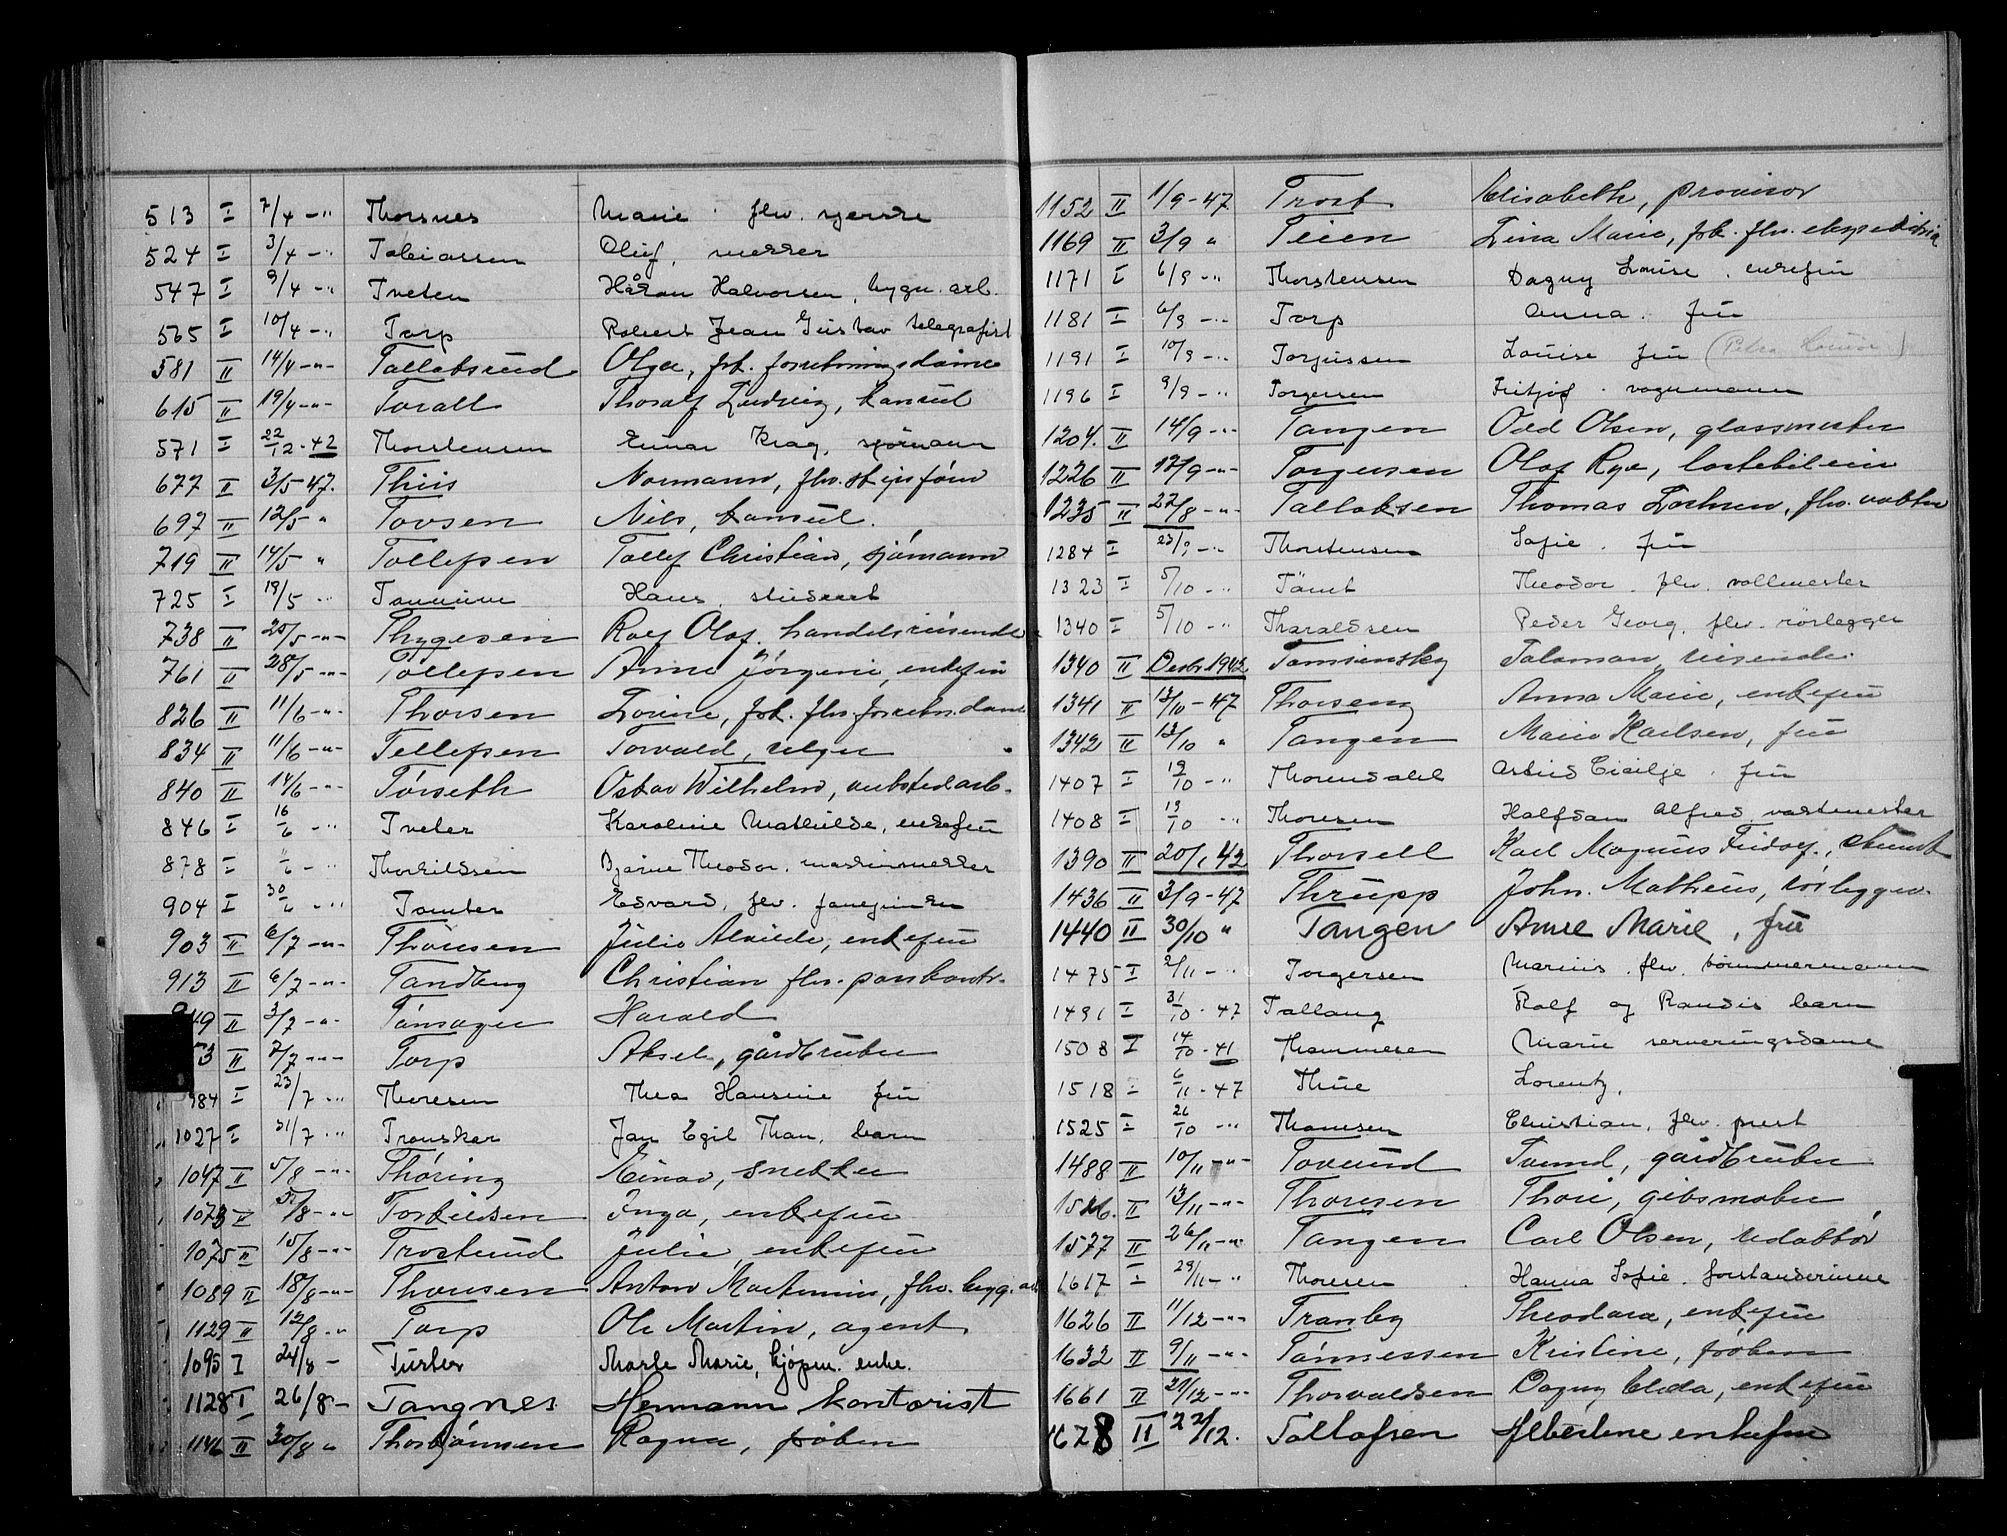 513 I 7/4 -" Thorsnes Marie flv.
524 I 3/4 -" Tobiassen Oluf, mekker
547 I 9/4 -" Tveten Håkon Halvorsen, bygn. arb.
565 I 10/4 -" Torp Robert Jean Gustav telegrafist
581 II 14/4 -"- Tallaksrud Olga, frk. forretningsdame
615 II 19/4 -"- Torall Thoralf Ludvig, konsul
571 I 22/12-42 Thorstensen Einar Krag, sjømann
677 II 3/5-47. Thiis Normann, flv. skipsfører
697 II 12/5 " Tovsen Nils, konsul.
719 II 14/5 " Tollefsen Tollef Christian, sjømann
725 I 19/5 -" Hans student
738 II 20/5 -"- Thygesen Rolf Olaf. handelsreisende
761 II 28/5 -"- Tollefsen Anne Jørgine, enkefru
826 II 11/6 -"- Thorsen Lovise, frk. flv. forretn. dame
834 II 11/6 -"- Tellefsen Torvald, selger
840 II 14/6 -"- Tørseth Oskar Wilhelm, verkstedarb.
846 I 16/6 -" Tveter Karoline Mathilde, enkefru
878 I -" Thorkildsen Bjarne Theodor. maskinmekker
904 I 30/6 -" Tomter Edvard, flv.
903 II 6/7 -"- Thoresen Julie Alvilde, enkefru
913 II 6/7 -"- Tandberg Christian flv. pankontr.
II 3/7 -"- Tømager Harald
II 7/7 -"- Torp Aksel, gårdbruker
984 I 23/7 -" Thoresen Thea Hansine fru
1027 I 31/7 -" Tronsker Jan Egil Than, barn
1047 II 5/8 -"- Thøring Einar, snekker
1073 II /8 -"- Torkildsen Inga, enkefru
1075 II 15/8 -"- Trosterud Julie enkefru
1089 II 18/8 -"- Thoresen Anton Martinius, flv. bygg. arb
1129 II 12/8 -"- Torp Ole Martin, agent
1095 I 24/8 - Turter Marte Marie, kjøpm. enke.
1128 I 26/8 - Tangnes Hermann kontorist
1146 II 30/8 " Thorbjørnsen Ragna, frøken
1152 II 1/9-47 Trost Elisabeth, provisor
1169 II 3/9 " Teien Lina Marie, frk. flv. ekspeditrise
1171 I 6/9 -" Thorstensen Dagny Louise. enkefru
1181 I 6/9 -" Torp Anna. fru
1191 I 10/9 -" Torjussen Louise fru
1196 I 9/9 -" Torgersen Fritjof. vognmann
1204. II 14/9 -"- Tangen Odd Olsen, glassmester
1226 II 17/9 -"- Torgersen Olaf Rye, lastebileier
1235 II 22/8 -"- Tallaksen Thomas Lochren, flv. vakter
1284 I 23/9 -" Thorstensen Sofie. fru
1323 I 5/10 -" Tömt Theodor. flv. vollmester
1340 I 5/10 -" Tharaldsen Peder Georg. flv. rørlegger
1340 II Desbr. 1942 Tamsensky Salaman, reisende.
1341 II 13/10-47 Thorseng Anna Marie, enkefru
1342 II 13/10 " Tangen Marie Karlsen, fru
1407 I 19/10 -" Thorendahl Astrid Cicilje. fru
1408 I 19/10 -" Thoresen Halfdan Alfred
1390 II 20/1 42 Thorsell Karl Magnus Fridolf.,
1436 II 3/9-47 Thrupp John. Matheus, rørlegger.
1440 II 30/10 " Tangen Anne Marie, fru
1475 I 2/11 -" Torgersen Marius. flv. tømmermann
1491 I 31/10-47 Tallang Rolf og Randis barn
1508 I 14/10-41 Thommesen Marie serveringsdame
1518 I 6/11-47 Thue Lorentz,
1525 I 26/10 -" Thomsen Christian, flv. prest
1488 II 10/11 -"- Toverud Tvend, gårdbruker
1526. II 13/11 -"- Thoresen Thori, gibsmaker
1577 II 26/11 -"- Tangen Carl Olsen, redaktør
1617 I 29/11 -" Thoresen Hanna Sofie. forstanderinne
1626 II 11/12 -"- Tranby Theodora, enkefru
1632 II 9/11 -"- Tønnessen Kristine, frøken
1661 II 29/12 -"- Thorvaldsen Dagny Elida, enkefru
1678 II 22/12. Tallafsen Albertine enkefru